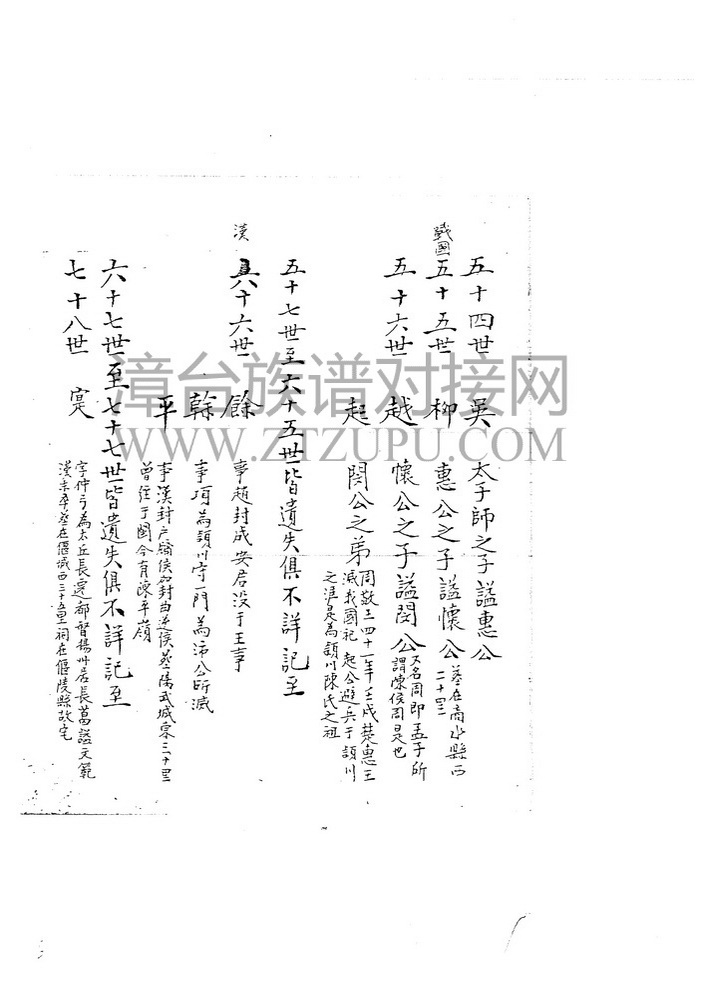 五十四世 吳 太子師之子謚惠公
戰國
五十五世 柳 惠公之子謚懷公 墓在商水縣西二十里
五十六世 越 懷公之子謚閔公 又名周即孟子所謂陳侯周是也
起 閔公之弟 周敬王四十一年壬戌楚惠王滅我國祀起公避兵于頴川之滸是為頴川陳氏之祖
五十七世至六十五世皆遺失俱不詳記至
漢
六十六世 餘 事趙封成安君没于王事
榦 事項為頴川守一門為沛公所滅
平 事漢封戶牖侯加封曲逆侯墓陽武城東三十里
曾往于閩今有陳平嶺
六十七世至七十七世皆遺失俱不詳記至
七十八世 寔 字仲弓為太丘長遷都督揚州居長葛謚文範
漢末卒墓在偃城西三十五里祠在偃陵縣故宅
漳台族谱对接网
WWW.ZTZUPU.COM